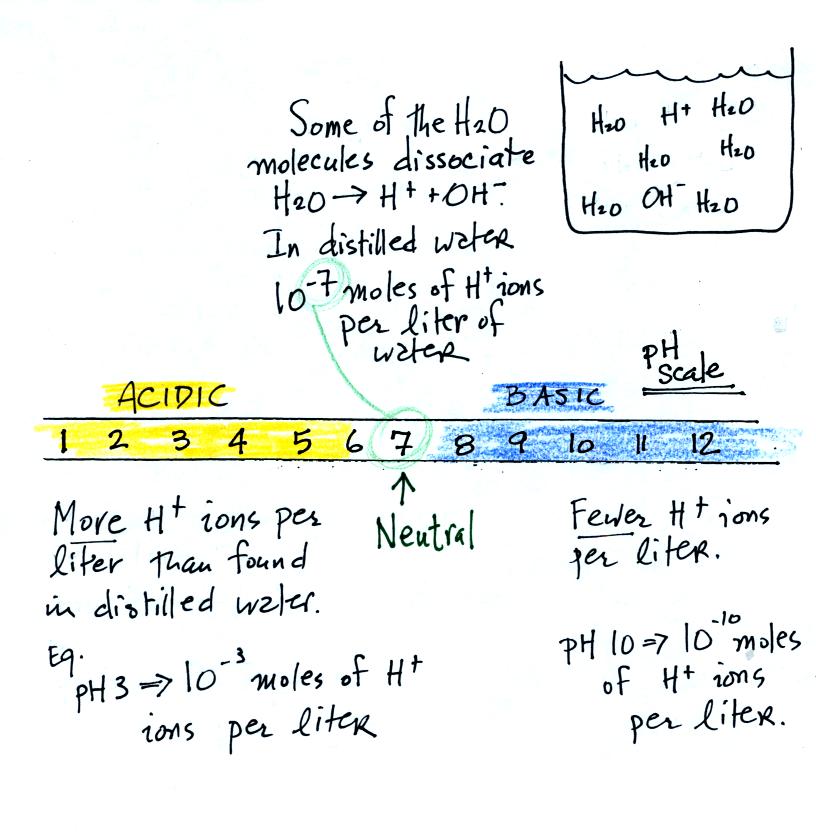 Some of the H₂O
molecules dissociate
H₂O → H⁺ + OH⁻.
In distilled water
10⁻⁷ moles of H⁺ ions
per liter of
water
H₂O H⁺ H₂O
H₂O H₂O
H₂O OH⁻ H₂O
pH
Scale
ACIDIC BASIC
1 2 3 4 5 6 7 8 9 10 11 12
↑
Neutral
More H⁺ ions per
liter than found
in distilled water.
Eg.
pH 3 ⇒ 10⁻³ moles of H⁺
ions per liter
Fewer H⁺ ions
per liter.
pH 10 ⇒ 10⁻¹⁰ moles
of H⁺ ions
per liter.